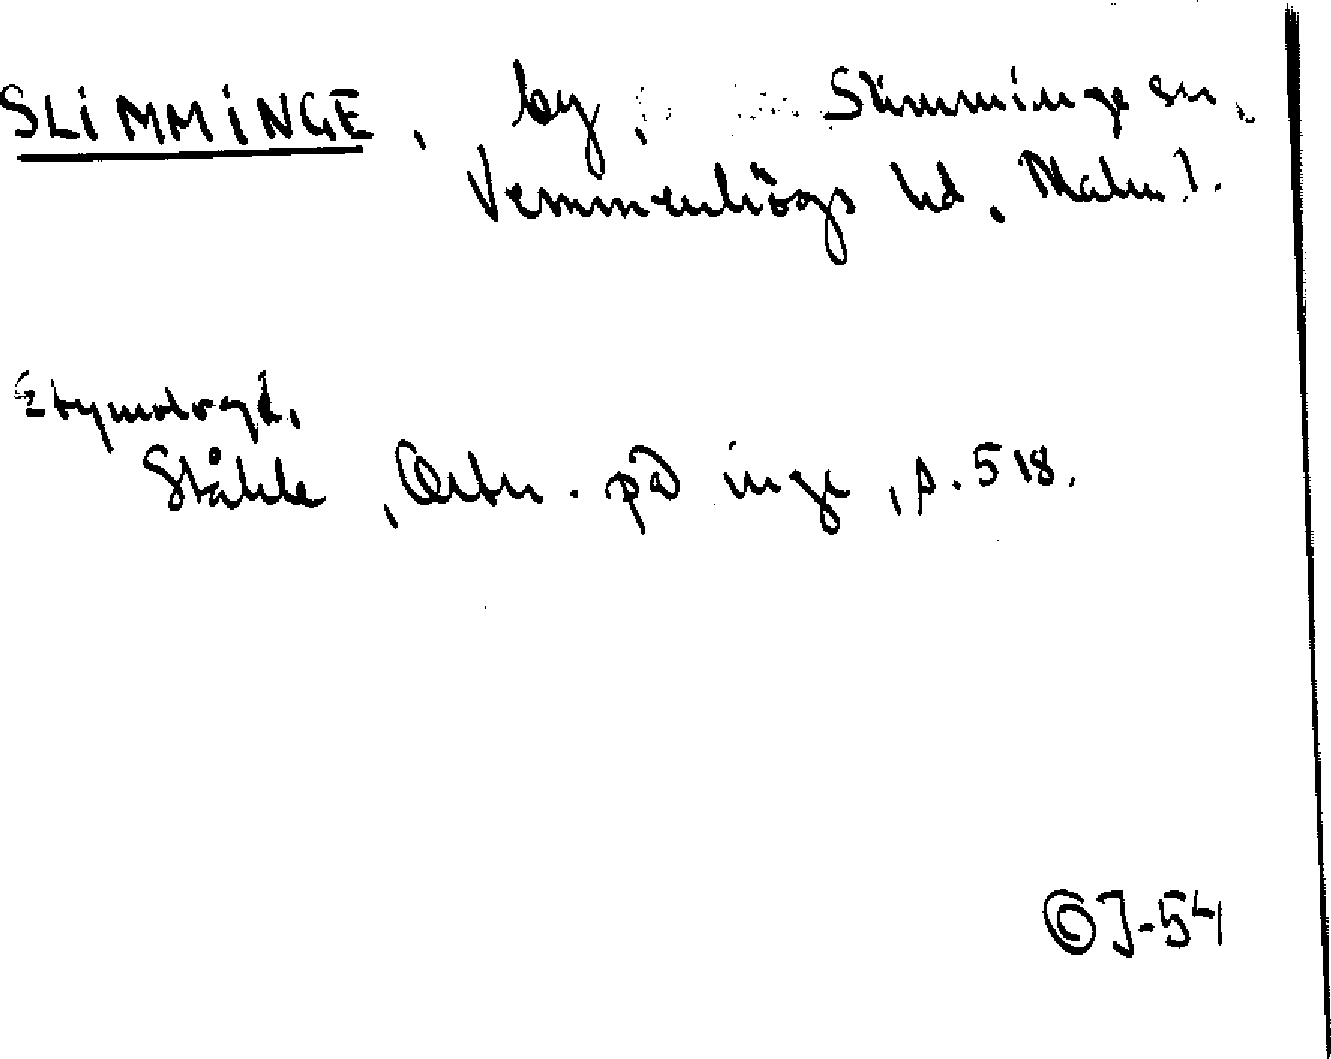 SLIMMINGE, by, Slimminge sn,
Vemmenhögs hd. Malm. l.
Etymologi,
Ståhle, Ortn. på inge, s. 518.
OJ-54